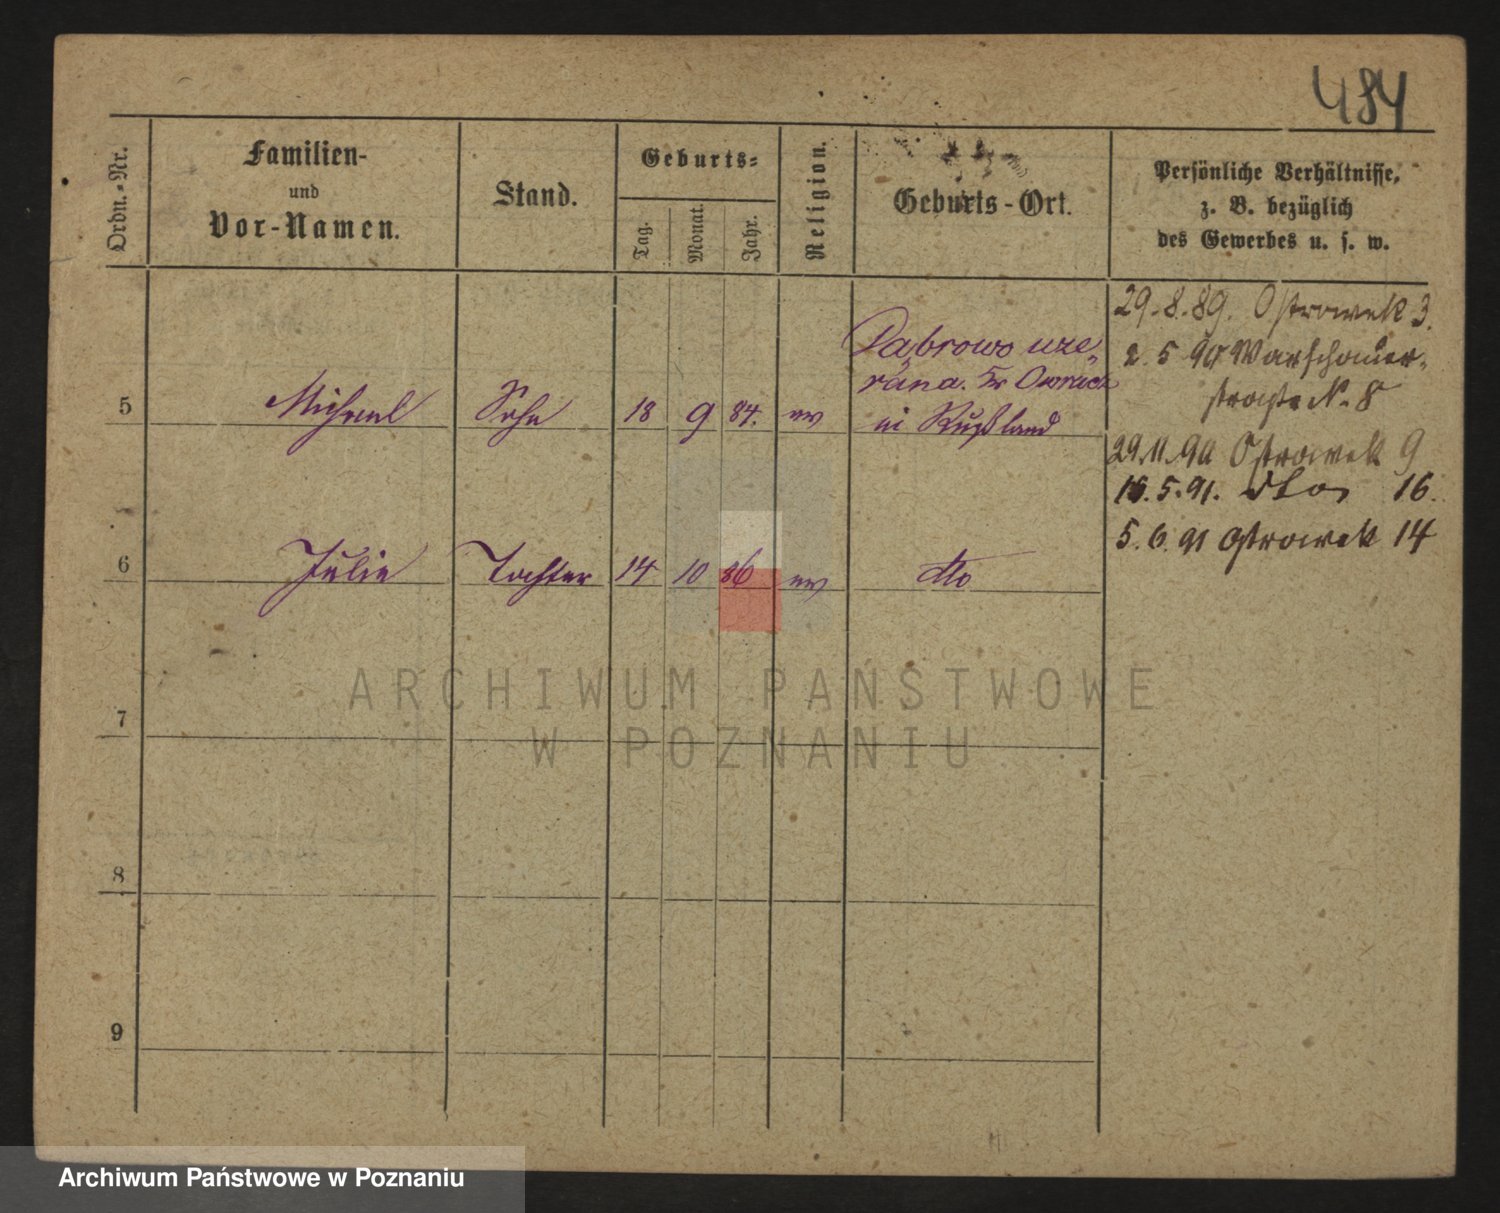 484
Ordn.-Nr.
Familien-
und
Vor-Namen.
Stand.
Geburts-
Tag.
Monat.
Jahr.
Religion.
Geburts-Ort.
Persönliche Verhältnisse,
z. B. bezüglich
des Gewerbes u. s. w.
29.8.89. Ostrowek 3.
2. 5 90 Warschauer-
straße N. 8
29.11.90 Ostrowek 9
16.5.91. dto 16.
5.6.91 Ostrowek 14
Dąbrowo
in Rußland
5 Michael Sohn 18 9 84. ev
6 Julie Tochter 14 10 86 ev dto
7
8
9
ARCHIWUM PAŃSTWOWE
W POZNANIU
Archiwum Państwowe w Poznaniu